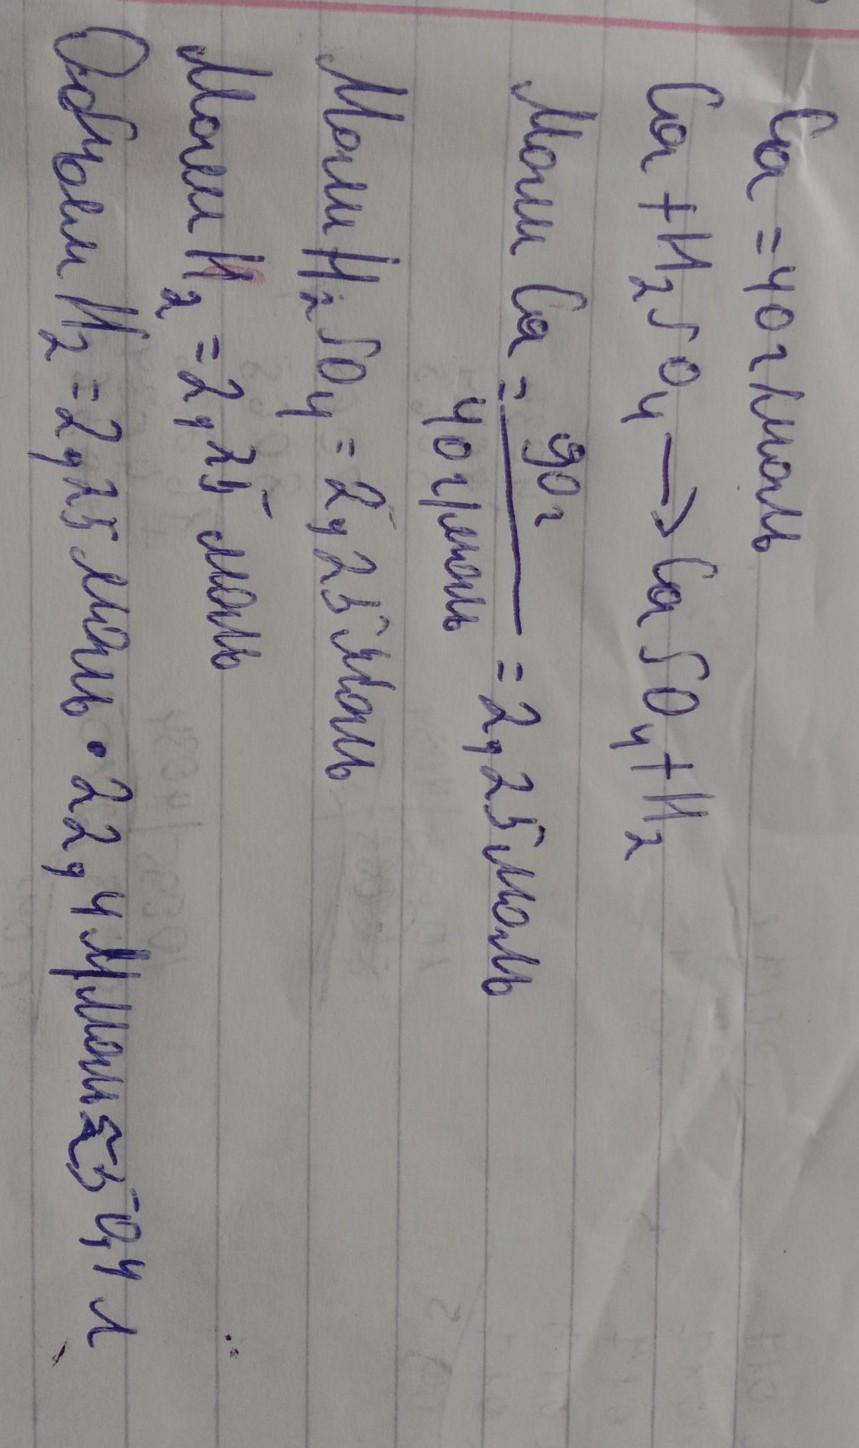 Ca = 40 г/моль
Ca + H2SO4 → CaSO4 + H2
Моли Ca = 90г / 40 г/моль = 2,25 моль
Моли H2SO4 = 2,25 моль
Моли H2 = 2,25 моль
Объем H2 = 2,25 моль · 22,4 л/моль ≈ 50,4 л